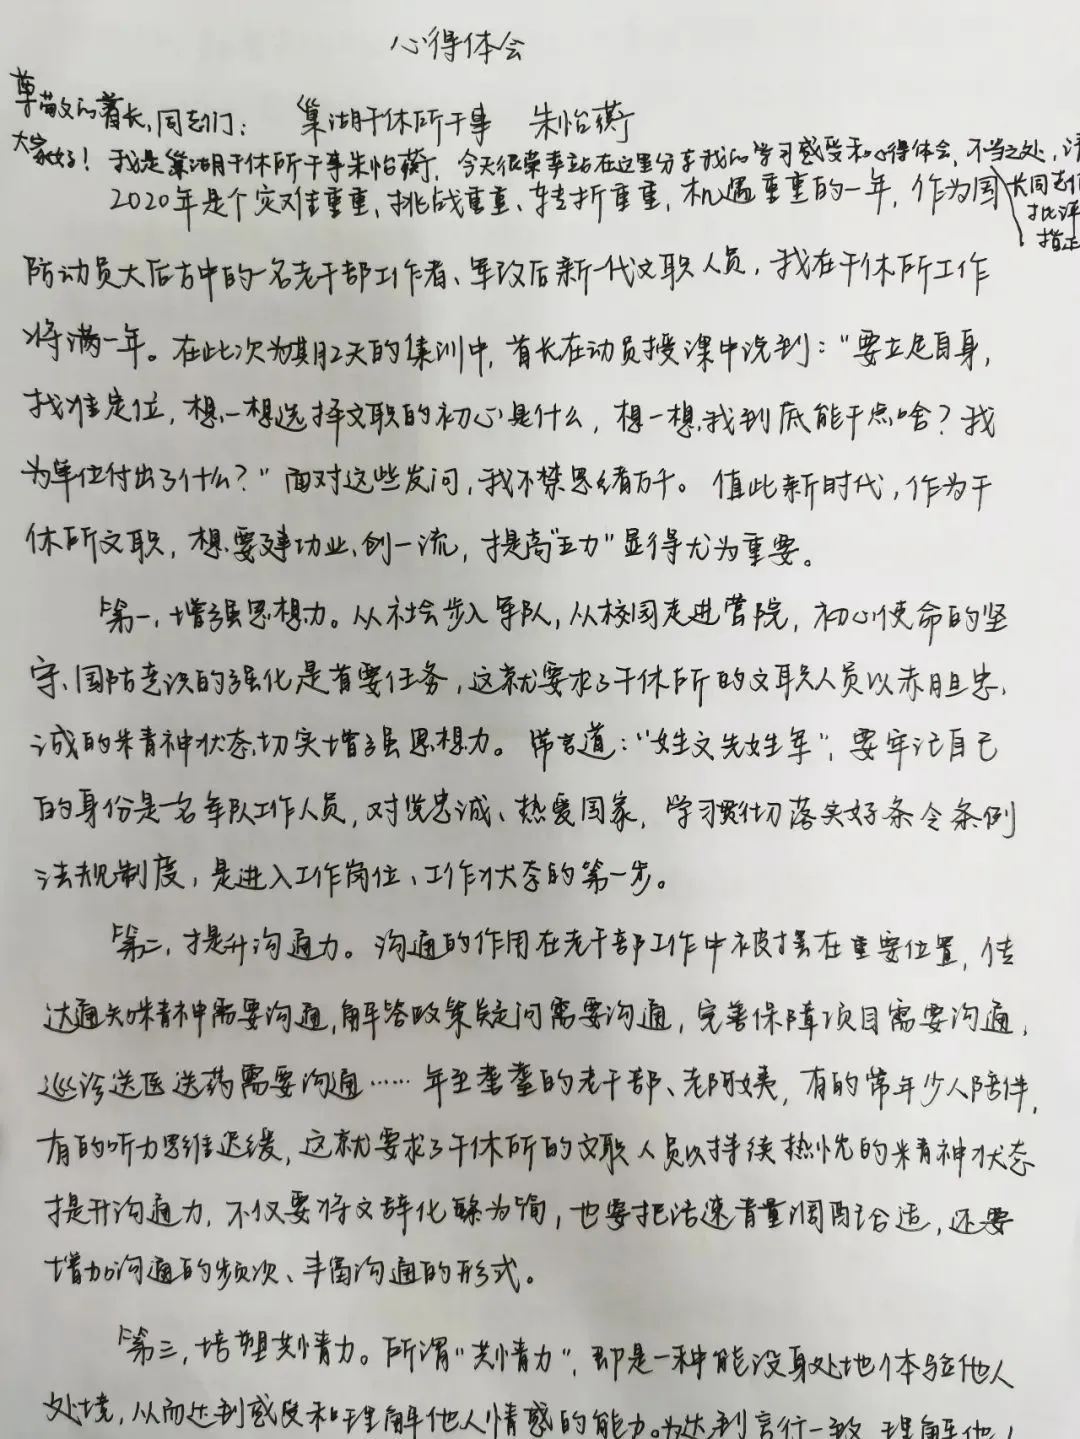 心得体会
尊敬的首长,同志们: 巢湖干休所干事 朱怡蓂
大家好! 我是巢湖干休所干事朱怡蓂,今天很荣幸站在这里分享我的学习感受和心得体会,不当之处,请
首长同志们
批评
指正
2020年是个灾难重重、挑战重重、转折重重、机遇重重的一年,作为国
防动员大后方中的一名老干部工作者、军改后新一代文职人员,我在干休所工作
将满一年。在此次为期12天的集训中,首长在动员授课中说到:“要立足自身,
找准定位,想一想选择文职的初心是什么,想一想我到底能干点啥?我
为单位付出了什么?”面对这些发问,我不禁思绪万千。值此新时代,作为干
休所文职,想要建功业、创一流,提高“五力”显得尤为重要。
第一,增强思想力。从社会步入军队,从校园走进营院,初心使命的坚
守、国防意识的强化是首要任务,这就要求了干休所的文职人员以赤胆忠
诚的精神状态切实增强思想力。常言道:“姓文先姓军”,要牢记自己
的身份是一名军队工作人员,对党忠诚、热爱国家,学习贯彻落实好条令条例
法规制度,是进入工作岗位、工作状态的第一步。
第二,提升沟通力。沟通的作用在老干部工作中被摆在重要位置,传
达通知精神需要沟通,解答政策疑问需要沟通,完善保障项目需要沟通,
巡诊送医送药需要沟通……年至耄耋的老干部、老阿姨,有的常年少人陪伴,
有的听力思维迟缓,这就要求了干休所的文职人员以持续热忱的精神状态
提升沟通力,不仅要将文辞化繁为简,也要把语速音量调配合适,还要
增加沟通的频次、丰富沟通的形式。
第三,培塑共情力。所谓“共情力”,即是一种能设身处地体验他人
处境,从而达到感受和理解他人情感的能力。为达到言行一致,理解他人